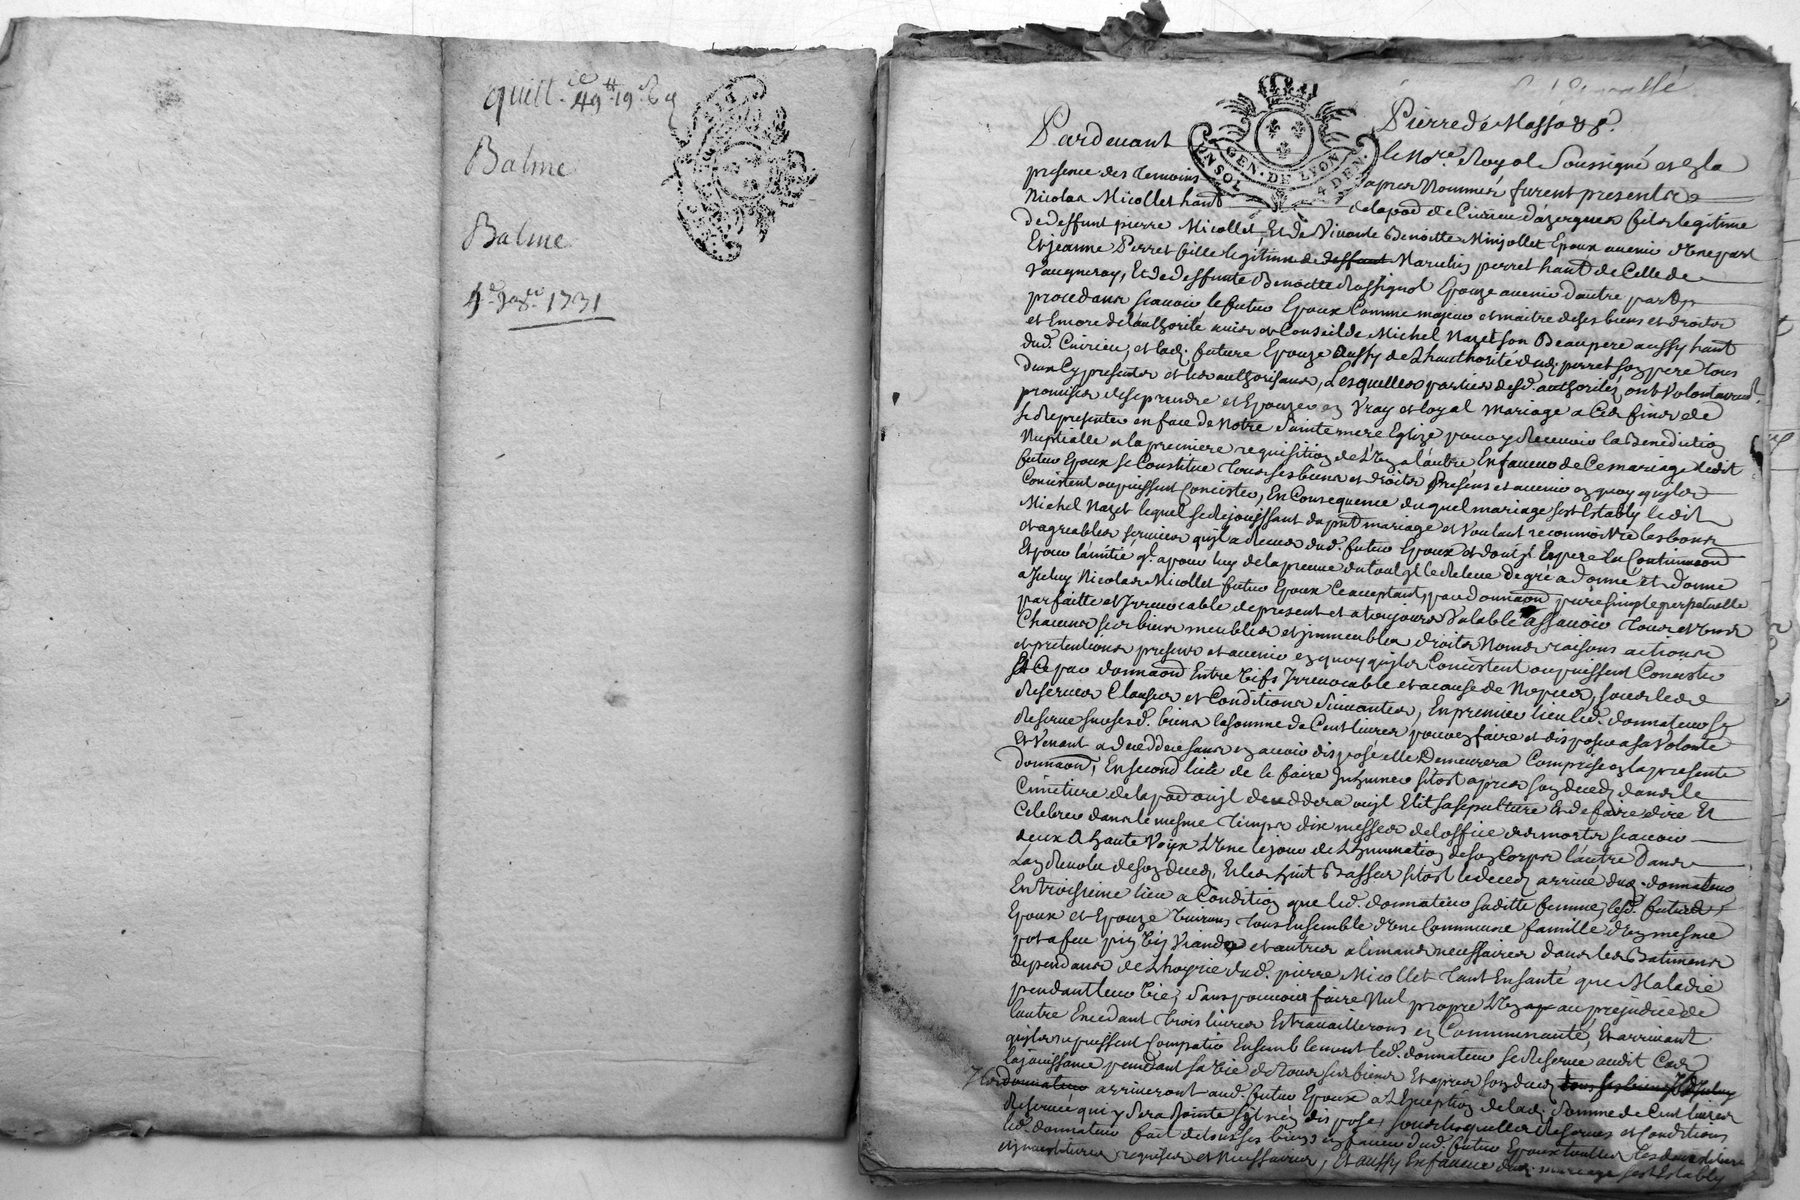 quitt.ce 49tt 19s 6d
Balme
Balme
4e 9bre 1731
GEN. DE LYON
UN SOL 4 DEN.
Pierre de Massas
Pardevant le Nore. Royal Soussigné et en la
presence des temoins apres Nommés furent presents
Nicolas Micollet habt de la paroisse de Civrieu d'azergues fils legitime
de deffunt pierre Micollet, Et de Vivante Benoitte Minjollet Epoux avenir d'Une part
Et jeanne Perret fille legitime de deffunt Mathieu perret habt de Celle de
Vaugneray, Et de deffunte Benoitte Rossignol Epouze avenir d'autre part
procedans scauoir le futur Epoux Comme majeur et maitre de ses biens et droits
et Encore de l'authorité auis et Conseil de Michel Nazet son Beaupere aussy habt
dud. Civrieu, et lad. future Epouze aussy de L'hauthorité dud. perret son pere tous
deux Cy presents et les authorisans, Lesquelles parties desd. authorités ont Volontairemt.
promises de se prendre et Epouzer en Vray et loyal Mariage a Ces fins de
se Representer en face de Notre Sainte mere Eglize pour y Recevoir la Benediction
Nuptialle a la premiere requisition de L'Un a l'autre, En faueur de Ce mariage ledit
futur Epoux se Constitue tous ses biens et droits presens et avenir en quoy qu'ils
Consistent ou puissent Concister, En Consequence du quel mariage s'est Estably ledit
Michel Nazet lequel se Rejouissant du pnt mariage et Voulant reconnoitre les bons
et agreables services qu'il a Receus dud. futur Epoux et dont il Espere la Continuaon
Et pour l'amitié ql. a pour luy de la preuue du tout il le Releue de gré a donné Et donne
a Iceluy Nicolas Micollet futur Epoux Ce acceptant, par donnaon pure simple perpetuelle
parfaitte et Irreuocable de present et a toujours Valable assauoir tous et Uns
Chacuns ses biens meubles et immeubles droits Noms raisons actions
et pretentions presens et avenir en quoy qu'ils Concistent ou puissent Concister
Et Ce par donnaon Entre Vifs Irreuocable et a cause de Nopces, sous les
Reserues Clauses et Conditions Suiuantes, En premier lieu led. donnateur se
Reserue sur sesd. biens la somme de Cent liures pour en faire et disposer a sa Volonté
Et Venant a deceder sans en auoir disposé elle Demeurera Comprise en la presente
donnaon, En second lieu de le faire Inhumer sitost apres son deceds dans le
Cimetiere de la paroisse ou il decedera ou il Elit sa sepulture Et de faire dire Et
Celebrer dans le mesme temps dix messes de l'office des morts scauoir
deux A haute Voix L'Une le jour de L'Inhumation de son Corps l'autre Dans
L'an Reuolu de son deceds, Et les huit Basses sitost le deceds arriué dud. donnateur
En troisieme lieu a Condition que led. donnateur saditte femme, lesd. futurs
Epoux et Epouze Viurons tous Ensemble d'Une Commune famille d'Un mesme
pot a feu pin Vin Viande et autres alimans necessaires dans les Batimens
dependans de L'hoyrie dud. pierre Micollet tant En santé que Maladie
pendant leur Vie, Sans pouuoir faire Nul propre L'Un au prejudice de
l'autre Excedant trois liures Et trauaillerons en Communauté, Et arriuant
qu'ils ne puissent Compatir Ensemblement led. donnateur se Reserue audit Cas
la jouissance pendant sa Vie de tous ses biens Et apres son deceds
arriueront aud. futur Epoux a L'Exception de lad. somme de Cent liures
Reseruée qui y sera Jointe s'il n'en dispose, sous lesquelles Reserues et Conditions
led. donnateur fait de tous ses biens en faueur dud. futur Epoux toutes
requises et necessaires, Et aussy En faueur dud. mariage s'est Estably